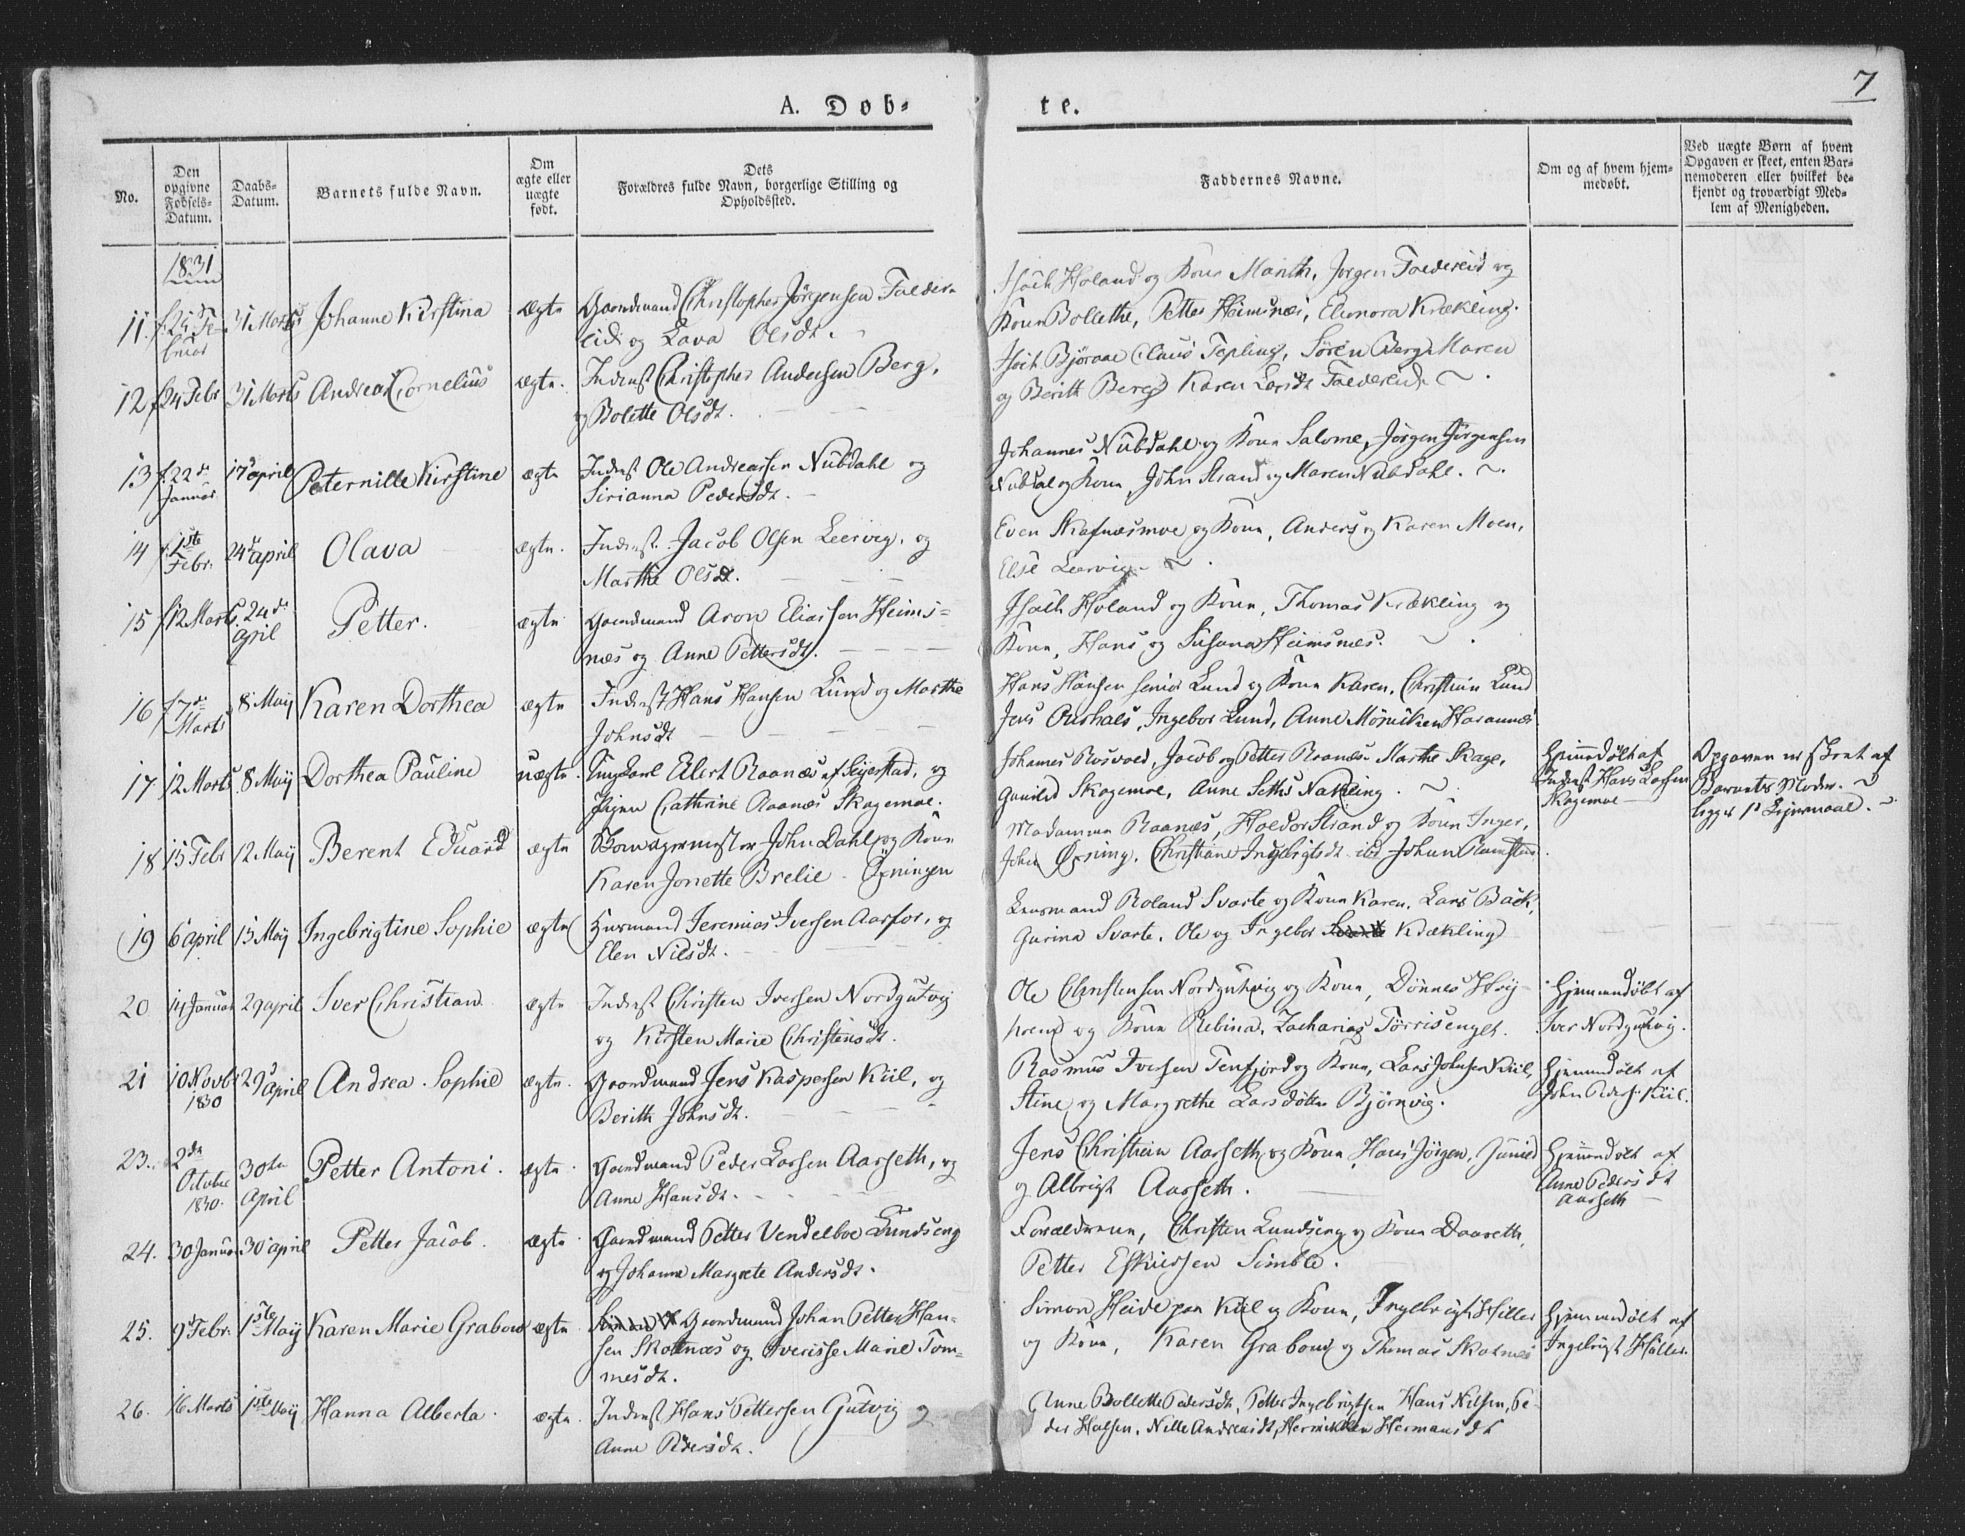 7
A. Døb-
te.
No.
Den opgivne Fødsels-Datum.
Daabs-Datum.
Barnets fulde Navn.
Om ægte eller uægte født.
Dets Forældres fulde Navn, borgerlige Stilling og Opholdssted.
Faddernes Navne.
Om og af hvem hjem-medøbt.
Ved uægte Børn af hvem Opgaven er skeet, enten Bar-nemoderen eller hvilket be-kjendt og troværdigt Med-lem af Menigheden.
1831
11. 31 Marts Johanne Kirstina ægte Gaardmand Christopher Jörgensen Foldere-
eid og Lava Olsdt.
Holand og Kone Marith, Jørgen Foldereid og
Kone Bollethe, Petter Heimsnæs, Elenora Krækling.
12 24 Febr 31 Marts Andreas Cornelius ægte. Inderst Christopher Andersen Berg,
og Bolette Olsdt.
Claus Tepling, Sören Berg, Maren
og Berith Berg Karen Larsdt Foldereid.
13 22d Januar 17d april Peternille Kirstine ægte Inderst Ole Andreassen Nubdahl og
Sirianna Pedersdt.
Johannes Nubdahl og Kone Salome, Jörgen Jörgensen
Nubdal og Kone, John Strand og Maren Nubdahl.
14 1ste Febr. 24d april Olava ægte. Inderst Jacob Olsen Leervig, og
Marthe Olsdt.
Even Skefnæsmoe og Kone, Anders og Karen Moen,
Else Leervig.
15 12 Marts 24de April Petter. ægte Gaardmand Aron Eliassen Heims-
næs og Anne Pettersdt.
Holand og Kone, Thomas Krækling og
Kone, Hans og Susana Heimsnæs.
16 7de Marts 8 Maij Karen Dorthea ægte Inderst Hans Hansen Lund og Marthe
Johnsdt
Hans Hansen senior Lund og Kone Karen, Christian Lund
Jens Oushals, Ingebor Lund, Anne
17 12 Marts 8 Maij Dorthea Pauline uægte. Ungkarl Eilert Raanæs af Seierstad, og
Pigen Cathrine Raanæs Skagemoe.
Johannes Rosvold, Jacob og Petter Raanæs Marthe Skage,
Gunild Skagemoe, Anne Seths Nakling.
Hjemmedøbt af
Inderst Hans Larsen
Skagemoe
Opgaven er skeet af
Barnets Moder.
begges 1s Leiermaal.
18 15 Febr 12 Maij Berent Eduard ægte John Dahl og Kone
Karen Jonette Brelie Öxningen
Madamme Raanæs, Holdor Strand og Kone Inger,
John Øxning, Christiane Ingebrigtsdt
19 6 april 15 Maij Ingebrigtine Sophie ægte Husmand Jeremias Iversen Aarfor, og
Elen Nilsdt.
Lensmand Roland Svarte og Kone Karen, Lars Back,
Gurina Svarte, Ole og Ingebor Krækling
20 14 Januar 29 april Iver Christian ægte Inderst Christen Iversen Nordgutvig
og Kirsten Marie Christensdt.
Ole Christensen Nordgutvig og Kone, Dönnes
og Kone Rebina, Zacharias Torrisenget.
Hjemmedøbt af
Iver Nordgutvig.
21 10 Novb 1830 29 april Andrea Sophie ægte. Gaardmand Jens Kaspersen Kiil, og
Berith Johnsdt.
Rasmus Iversen Tenfjord og Kone, Lars Johnsen Kiil,
Stine, og Margrethe Larsdötter Björnvig.
Hjemmedøbt af
John Peders. Kiil.
23. 2den October 1830 30te April Petter Antoni. ægte Gaardmand Peder Larsen Aarseth, og
Anne Hansdt.
Jens Christian Aarseth og Kone, Hans Jörgen,
og Albrigt Aarseth.
Hjemmedøbt af
Anne Pedersdt
Aarseth
24. 30 Januar 30 april Petter Jacob. ægte Gaardmand Petter Vendelboe Lundseng
og Johanna Margrete Andersdt.
Forældrene, Christen Lundseng og Kone Daareth,
Petter Eskiersen Simble.
25. 9d Febr. 1ste Maij Karen Marie Grabow ægte Gaardmand Johan Petter Han-
sen Skotnæs og Iverisse Marie Tom-
mesdt.
Simon Heide paa Kiil og Kone, Ingebrigt Hiller
og Kone, Karen Grabow og Thomas Skotnes
Hjemmedøbt af
Ingebrigt Hiller.
26. 16 Marts 1ste Maij Hanna Alberta. ægte. Inderst Hans Pettersen Gutvig og
Anne Pedersdt.
Anne Bollette Pedersdt, Petter Ingebrigtsen Hans Nilsen, Pe-
der Halsen, Nille Andreasdt, Hermansdt